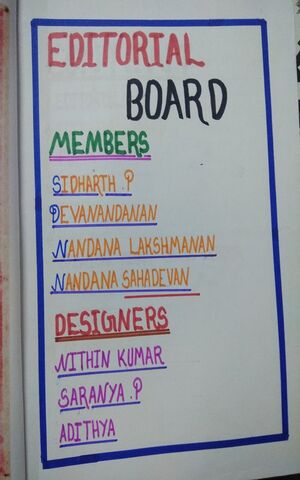 EDITORIAL
BOARD
MEMBERS
SIDHARTH .P
DEVANANDANAN
NANDANA LAKSHMANAN
NANDANA SAHADEVAN
DESIGNERS
NITHIN KUMAR
SARANYA .P
ADITHYA